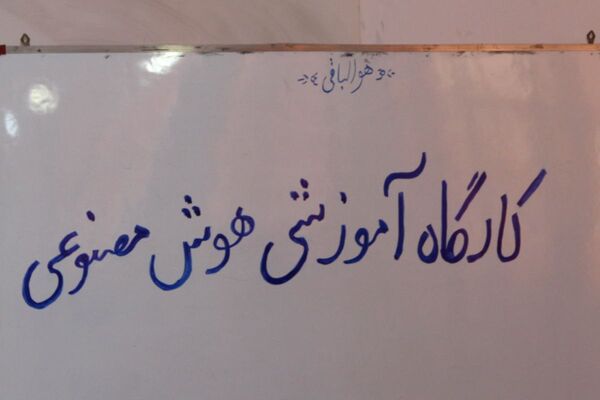 هوالباقی
کارگاه آموزشی هوش مصنوعی